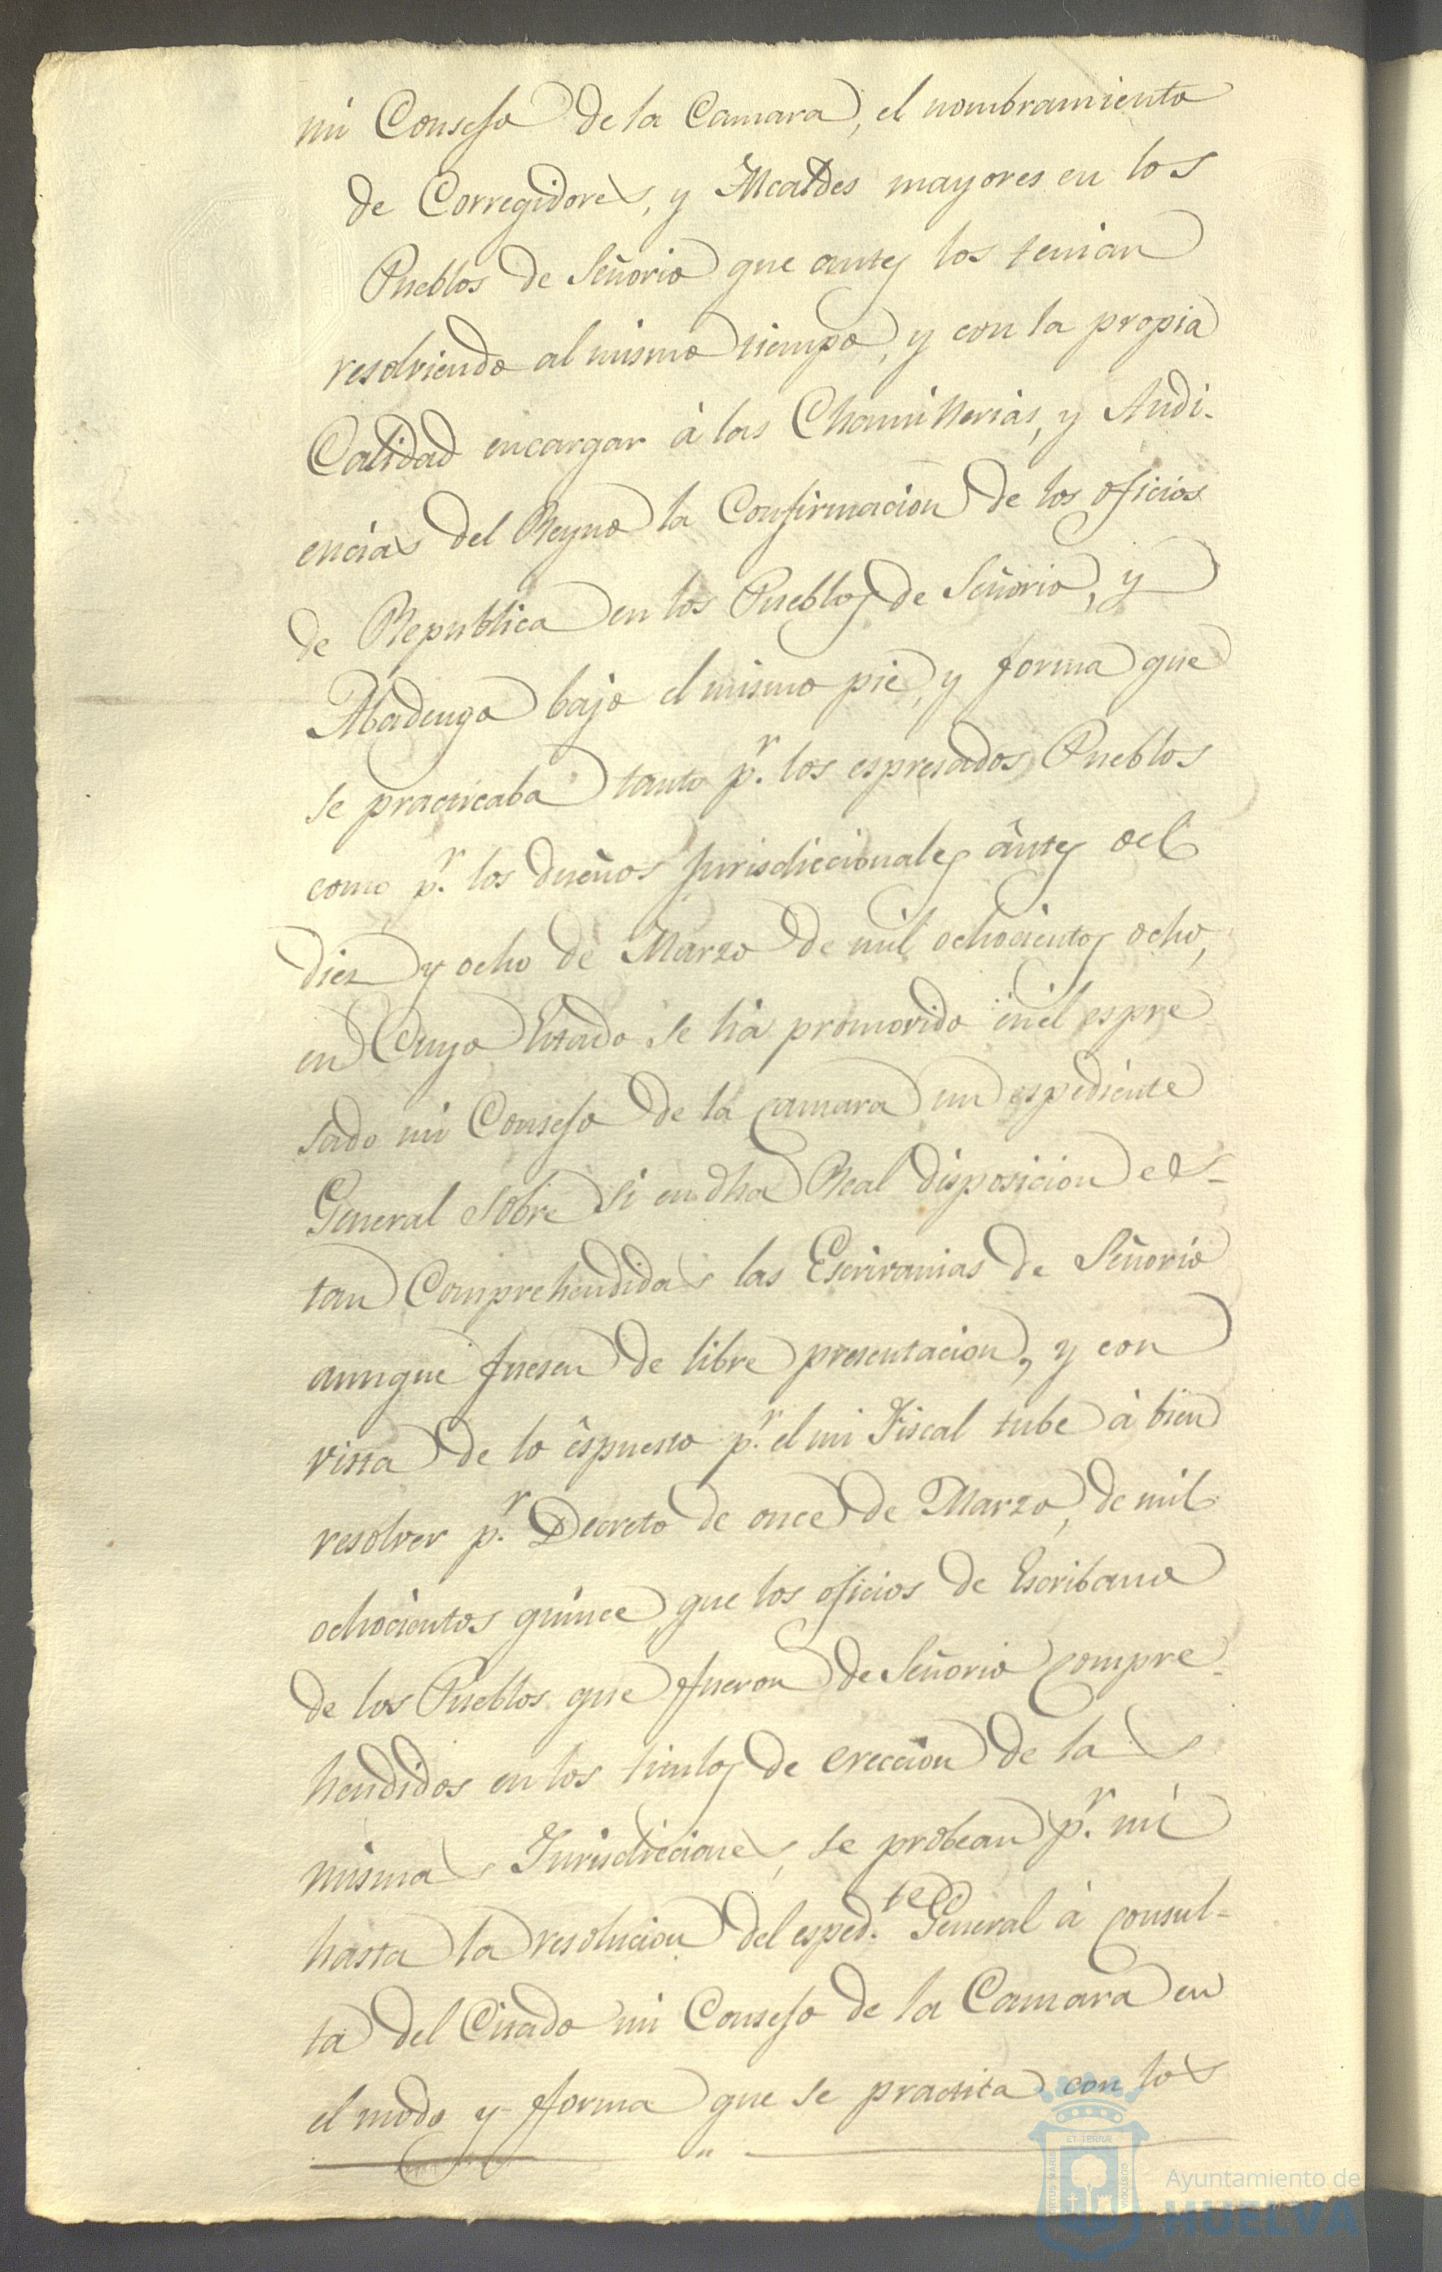 mi Consejo de la Camara, el nombramiento
de Corregidores, y Alcaldes mayores en los
Pueblos de Señorio que antes los tenian
resolviendo al mismo tiempo, y con la propia
Calidad encargar à las Chancillerias, y Audi-
encias del Reyno la Confirmacion de los oficios
de Republica en los Pueblos de Señorio, y
Abadengo bajo el mismo pie, y forma que
se practicaba tanto pr. los espresados Pueblos
como pr. los dueños Jurisdiccionales ântes del
diez y ocho de Marzo de mil ochocientos ocho,
en Cuyo Estado se hà promovido en el espre
sado mi Consejo de la Camara un espediente
General sobre si en dha Real disposicion es-
tan Comprehendidas las Escrivanias de Señorio
aunque fuesen de libre presentacion, y con
vista de lo êspuesto pr. el mi Fiscal tube à bien
resolver pr. Decreto de once de Marzo, de mil
ochocientos quince, que los oficios de Escribano
de los Pueblos que fueron de Señorio compre-
hendidos en los titulos de ereccion de las
mismas Jurisdicciones, se probean pr. mi
hasta la resolucion del espedte. General à consul-
ta del Citado mi Consejo de la Camara en
el modo y forma que se practica con los
Ayuntamiento de
HUELVA